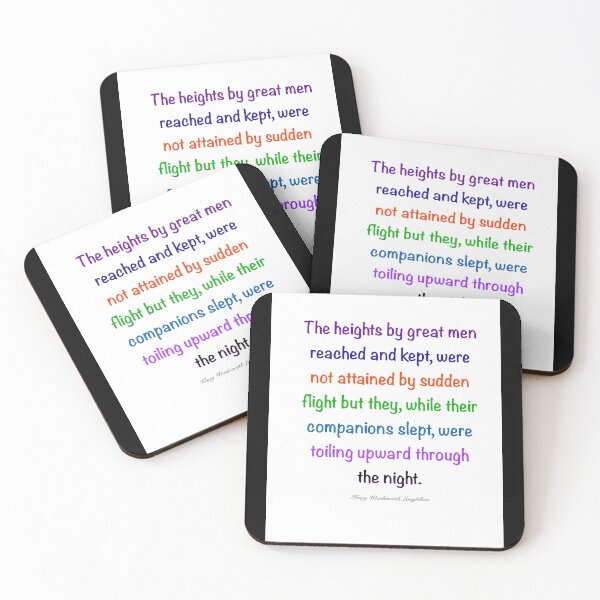 The heights by great men
reached and kept, were
not attained by sudden
flight but they, while their
slept, were
through
The heights by great men
reached and kept, were
not attained by sudden
flight but they, while their
companions slept, were
toiling upward through
The heights by great men
reached and kept, were
not attained by sudden
flight but they, while their
companions slept, were
toiling upward
the night.
Henry Wordsworth Longfellow
The heights by great men
reached and kept, were
not attained by sudden
flight but they, while their
companions slept, were
toiling upward through
the night.
Henry Wordsworth Longfellow